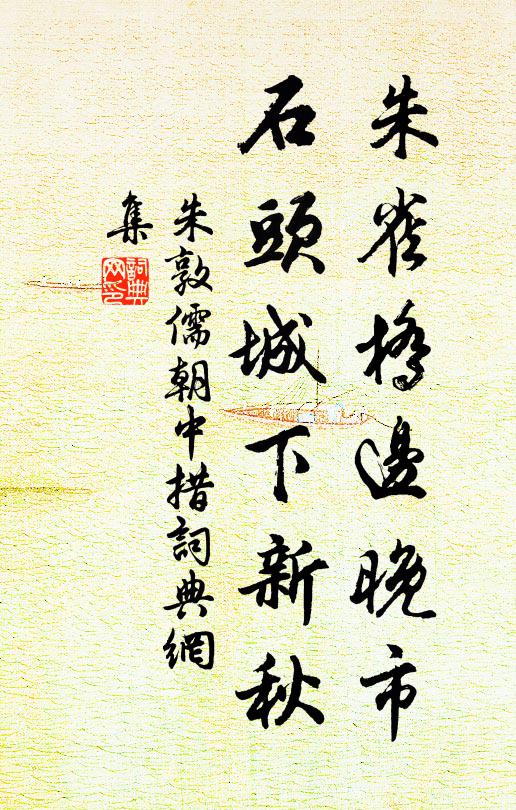 朱雀橋邊晚市
石頭城下新秋
朱敦儒朝中措詞典網
集
詞典网印